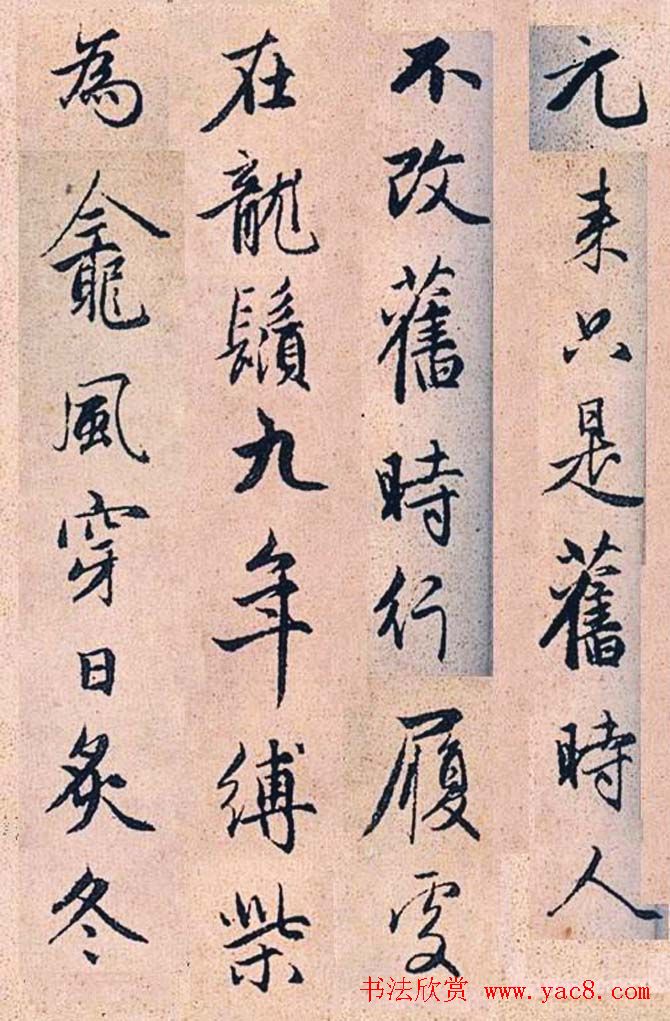 元来只是舊時人
不改舊時行履處
在龍鬚九年縛柴
為龕風穿日炙冬
书法欣赏 www.yac8.com